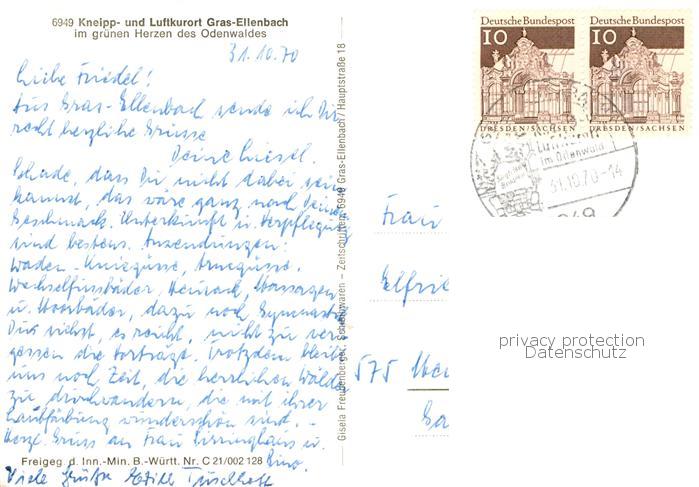 6949 Kneipp- und Luftkurort Gras-Ellenbach
im grünen Herzen des Odenwaldes
31.10.70
Liebe Friedel!
Aus Gras-Ellenbach sende ich Dir
recht herzliche Grüsse
Deine Liesel.
Schade, dass Du nicht dabei sein
kannst, das wäre ganz nach Deinem
Geschmack. Unterkunft u. Verpflegung
sind bestens. Anwendungen:
Waden- Kniegüsse, Armgüsse,
Wechselfussbäder, Heusack, Massagen
u. Moorbäder, dazu noch Gymnastik
Du siehst, es reicht, nicht zu ver-
gessen die Vorträge. Trotzdem bleibt
uns noch Zeit, die herrlichen Wälder
zu durchwandern, die mit ihrer
Laubfärbung wunderschön sind. -
Herzl. Gruss an Frau u.
Freigeg. d. Inn.-Min. B.-Württ. Nr. C 21/002 128
Viele Grüße
Gisela Freudenberger, Schreibwaren - Zeitschriften, 6949 Gras-Ellenbach / Hauptstraße 18
Deutsche Bundespost
10
DRESDEN/SACHSEN
Deutsche Bundespost
10
DRESDEN/SACHSEN
im Odenwald
31.10.70-14
Frau
Elfrie
575
privacy protection
Datenschutz